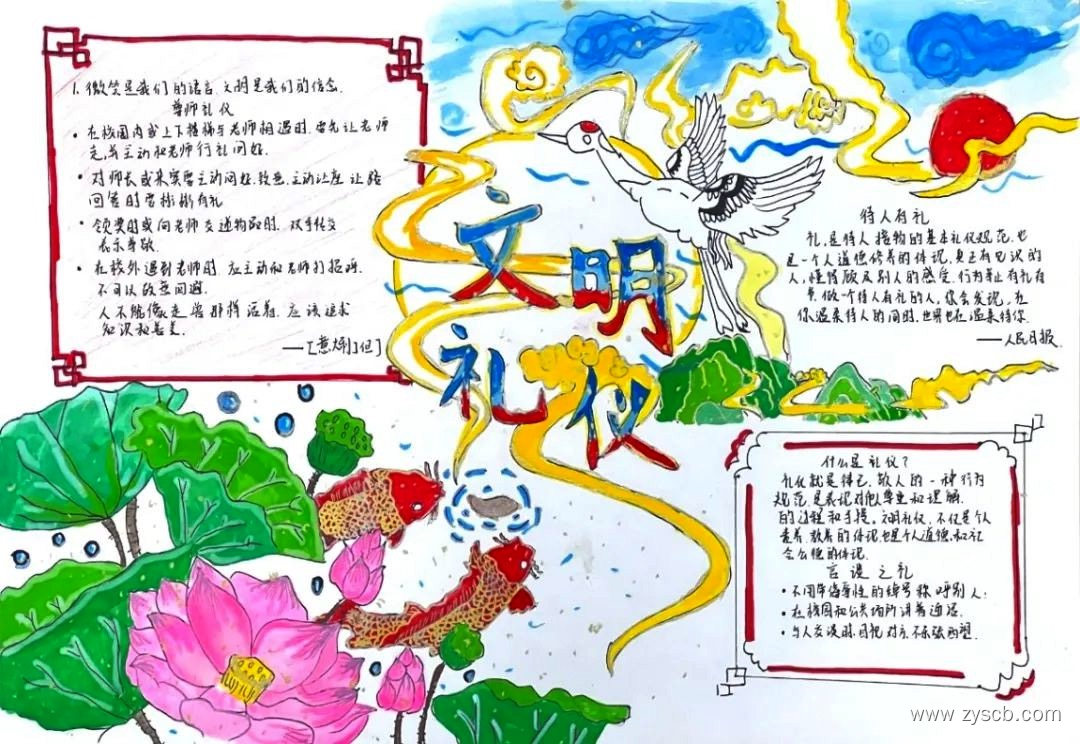 1. 微笑是我们的语言,文明是我们的信念.
尊师礼仪
• 在校园内或上下楼梯与老师相遇时.要先让老师
走,并主动和老师行礼问好.
• 对师长或来宾要主动问好.致意.主动让座 让路
回答时要彬彬有礼
• 领奖时或向老师交递物品时.双手传交
表示尊敬.
• 在校外遇到老师时.应主动和老师打招呼.
不可以故意回避.
人不能像走兽那样活着.应该追求
知识和美德.
——[意大利]但丁
文明
礼仪
待人有礼
礼,是待人接物的基本礼仪规范.也
是一个人道德修养的体现,真正有见识的
人,懂得顾及别人的感受.行为举止有礼有
节.做一个待人有礼的人,你会发现,在
你温柔待人的同时.世界也在温柔待你.
——人民日报.
什么是礼仪?
礼仪就是律己、敬人的一种行为
规范.是表现对他尊重和理解
的过程和手段。文明礼仪.不仅是个人
素养、教养的体现.也是个人道德和社
会公德的体现.
言谈之礼
• 不用带侮辱性的绰号称呼别人;
• 在校园和公共场所讲普通话.
• 与人交谈时.目视对方.不东张西望.
www.zyscb.com